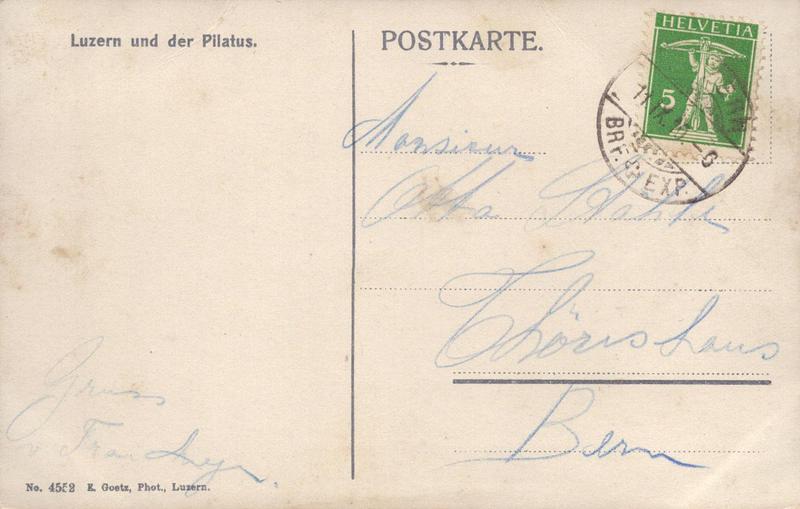 Luzern und der Pilatus.
POSTKARTE.
HELVETIA
5
BRF. EXP.
Monsieur
Otto
Thörishaus
Bern
Gruss
v Frau
No. 4552 E. Goetz, Phot., Luzern.